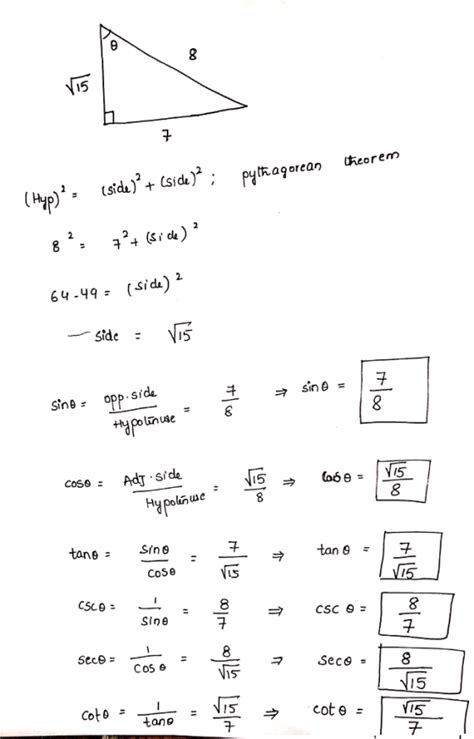 θ
8
√15
7
(Hyp)² = (side)² + (side)² ; pythagorean theorem
8² = 7² + (side)²
64 - 49 = (side)²
— side = √15
sinθ = opp.side / Hypotenuse = 7/8 ⇒ sinθ = 7/8
cosθ = Adj.side / Hypotenuse = √15/8 ⇒ cosθ = √15/8
tanθ = sinθ/cosθ = 7/√15 ⇒ tanθ = 7/√15
cscθ = 1/sinθ = 8/7 ⇒ cscθ = 8/7
secθ = 1/cosθ = 8/√15 ⇒ secθ = 8/√15
cotθ = 1/tanθ = √15/7 ⇒ cotθ = √15/7